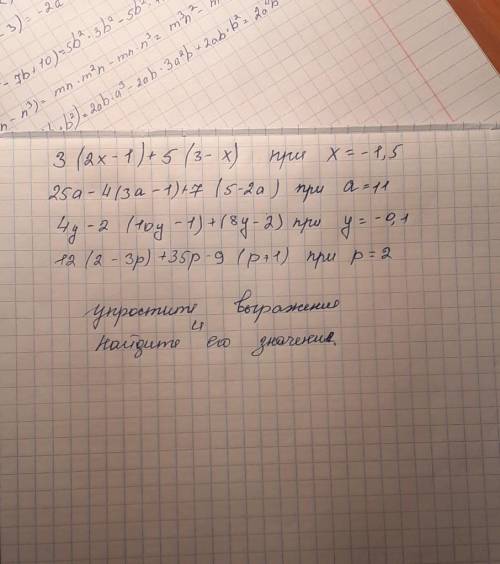 3) = -2a
- 7b + 10) = 5b² · 3b² - 5b² ·
n - n³) = mn · m²n - mn · n³ = m³n² -
b²) = 2ab · a³ - 2ab · 3a²b + 2ab · b² = 2a⁴b
3 (2x - 1) + 5 (3 - x) при x = -1,5
25a - 4(3a - 1) + 7 (5 - 2a) при a = 11
4y - 2 (10y - 1) + (8y - 2) при y = -0,1
12 (2 - 3p) + 35p - 9 (p + 1) при p = 2
упростите выражение
и
Найдите его значение.